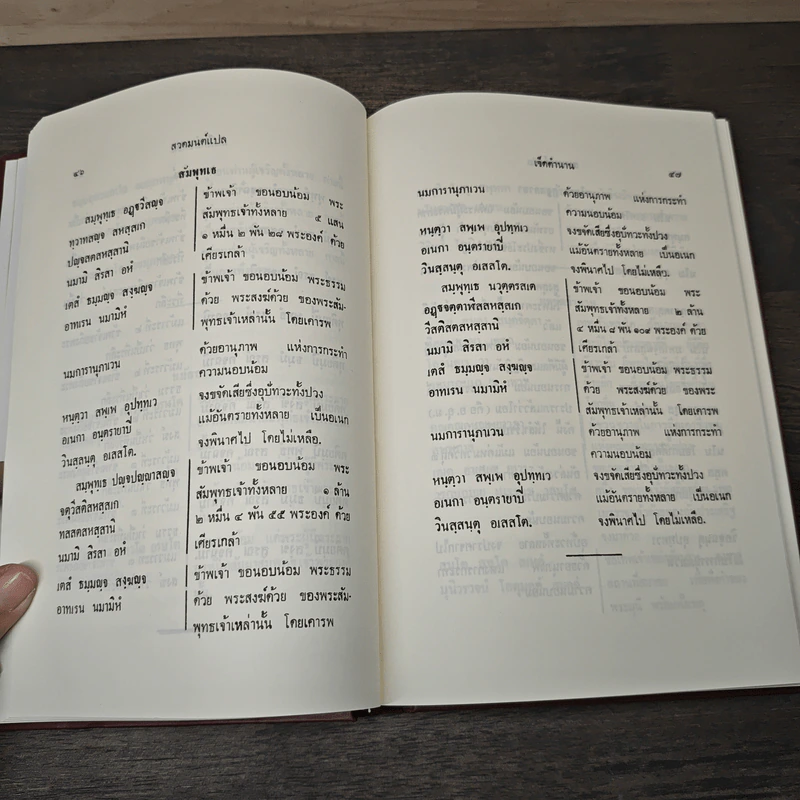 สวดมนต์แปล
๔๖
สัมพุทเธ
สมฺพุทฺเธ อฏฺฐวีสญฺจ
ทฺวาทสญฺจ สหสฺสเก
ปญฺจสตสหสฺสานิ
นมามิ สิรสา อหํ
เตสํ ธมฺมญฺจ สงฺฆญฺจ
อาทเรน นมามิหํ
ข้าพเจ้า ขอนอบน้อม พระ
สัมพุทธเจ้าทั้งหลาย ๕ แสน
๑ หมื่น ๒ พัน ๒๘ พระองค์ ด้วย
เศียรเกล้า
ข้าพเจ้า ขอนอบน้อม พระธรรม
ด้วย พระสงฆ์ด้วย ของพระสัม-
พุทธเจ้าเหล่านั้น โดยเคารพ
นมการานุภาเวน
ด้วยอานุภาพ แห่งการกระทำ
ความนอบน้อม
หนฺตฺวา สพฺเพ อุปทฺทเว
อเนกา อนฺตรายาปิ
วินสฺสนฺตุ อเสสโต.
จงขจัดเสียซึ่งอุปัทวะทั้งปวง
แม้อันตรายทั้งหลาย เป็นอเนก
จงพินาศไป โดยไม่เหลือ.
สมฺพุทฺเธ ปญฺจปญฺญาสญฺจ
จตุวีสติสหสฺสเก
ทสสตสหสฺสานิ
นมามิ สิรสา อหํ
เตสํ ธมฺมญฺจ สงฺฆญฺจ
อาทเรน นมามิหํ
ข้าพเจ้า ขอนอบน้อม พระ
สัมพุทธเจ้าทั้งหลาย ๑ ล้าน
๒ หมื่น ๔ พัน ๕๕ พระองค์ ด้วย
เศียรเกล้า
ข้าพเจ้า ขอนอบน้อม พระธรรม
ด้วย พระสงฆ์ด้วย ของพระสัม-
พุทธเจ้าเหล่านั้น โดยเคารพ
เจ็ดตำนาน
๔๗
นมการานุภาเวน
ด้วยอานุภาพ แห่งการกระทำ
ความนอบน้อม
หนฺตฺวา สพฺเพ อุปทฺทเว
อเนกา อนฺตรายาปิ
วินสฺสนฺตุ อเสสโต.
จงขจัดเสียซึ่งอุปัทวะทั้งปวง
แม้อันตรายทั้งหลาย เป็นอเนก
จงพินาศไป โดยไม่เหลือ.
สมฺพุทฺเธ นวุตฺตรสเต
อฏฺฐจตฺตาฬีสสหสฺสเก
วีสติสตสหสฺสานิ
นมามิ สิรสา อหํ
เตสํ ธมฺมญฺจ สงฺฆญฺจ
อาทเรน นมามิหํ
ข้าพเจ้า ขอนอบน้อม พระ
สัมพุทธเจ้าทั้งหลาย ๒ ล้าน
๔ หมื่น ๘ พัน ๑๐๙ พระองค์ ด้วย
เศียรเกล้า
ข้าพเจ้า ขอนอบน้อม พระธรรม
ด้วย พระสงฆ์ด้วย ของพระ
สัมพุทธเจ้าเหล่านั้น โดยเคารพ
นมการานุภาเวน
ด้วยอานุภาพ แห่งการกระทำ
ความนอบน้อม
หนฺตฺวา สพฺเพ อุปทฺทเว
อเนกา อนฺตรายาปิ
วินสฺสนฺตุ อเสสโต.
จงขจัดเสียซึ่งอุปัทวะทั้งปวง
แม้อันตรายทั้งหลาย เป็นอเนก
จงพินาศไป โดยไม่เหลือ.